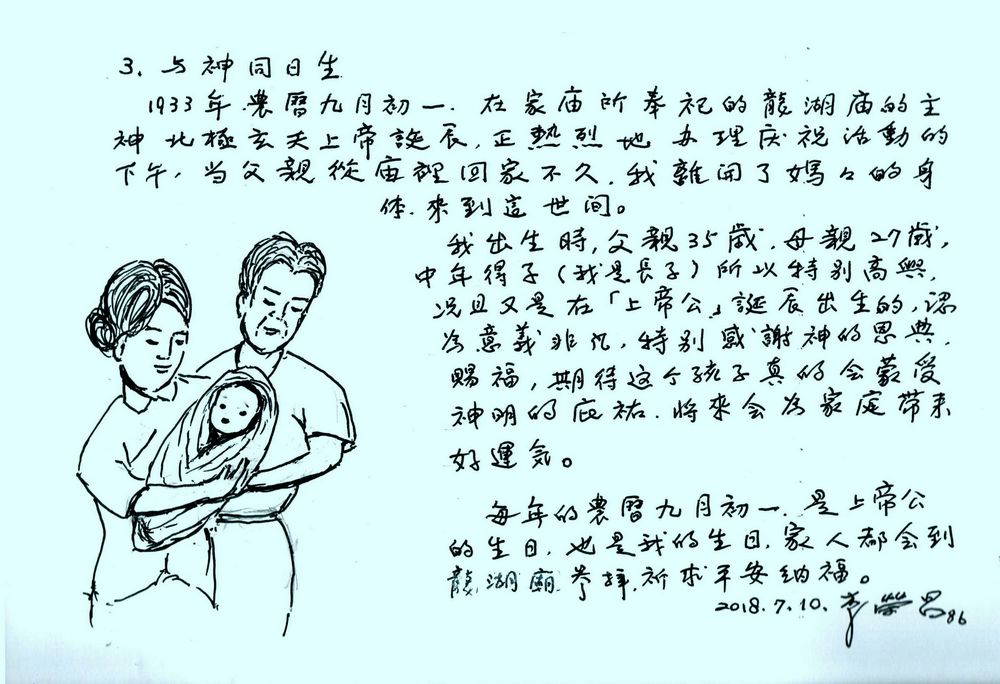 3、与神同日生
1933年農曆九月初一.在家庙所奉祀的龍湖庙的主
神北極玄天上帝誕辰,正熱烈地办理庆祝活動的
下午,当父親從庙裡回家不久.我離開了媽々的身
体.来到這世间。
我出生時,父親35歲.母親27歲,
中年得子(我是長子)所以特别高興.
况且又是在「上帝公」誕辰出生的,認
为意義非凡,特别感謝神的恩典.
賜福,期待这个孩子真的会蒙受
神明的庇祐.将來会为家庭帶来
好運気。
每年的農曆九月初一.是上帝公
的生日.也是我的生日.家人都会到
龍湖廟参拜.祈求平安纳福。
2018.7.10.李榮昌86